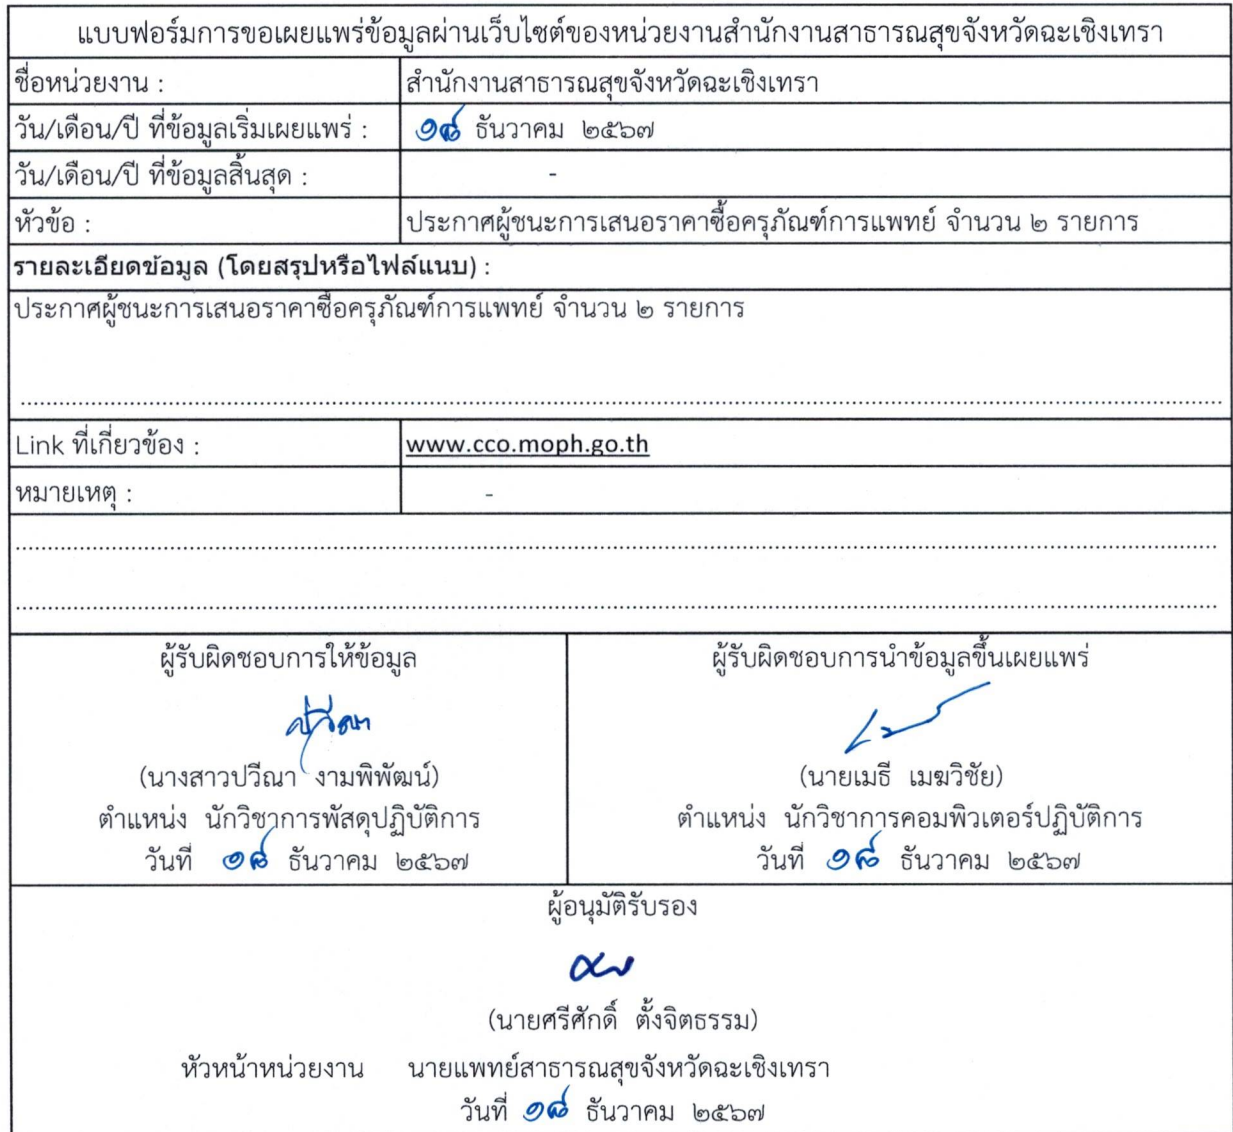 แบบฟอร์มการขอเผยแพร่ข้อมูลผ่านเว็บไซต์ของหน่วยงานสำนักงานสาธารณสุขจังหวัดฉะเชิงเทรา
ชื่อหน่วยงาน : สำนักงานสาธารณสุขจังหวัดฉะเชิงเทรา
วัน/เดือน/ปี ที่ข้อมูลเริ่มเผยแพร่ : ๑๘ ธันวาคม ๒๕๖๗
วัน/เดือน/ปี ที่ข้อมูลสิ้นสุด : -
หัวข้อ : ประกาศผู้ชนะการเสนอราคาซื้อครุภัณฑ์การแพทย์ จำนวน ๒ รายการ
รายละเอียดข้อมูล (โดยสรุปหรือไฟล์แนบ) :
ประกาศผู้ชนะการเสนอราคาซื้อครุภัณฑ์การแพทย์ จำนวน ๒ รายการ
Link ที่เกี่ยวข้อง : www.cco.moph.go.th
หมายเหตุ : -
ผู้รับผิดชอบการให้ข้อมูล
ปวีณา
(นางสาวปวีณา งามพิพัฒน์)
ตำแหน่ง นักวิชาการพัสดุปฏิบัติการ
วันที่ ๑๘ ธันวาคม ๒๕๖๗
ผู้รับผิดชอบการนำข้อมูลขึ้นเผยแพร่
(นายเมธี เมฆวิชัย)
ตำแหน่ง นักวิชาการคอมพิวเตอร์ปฏิบัติการ
วันที่ ๑๘ ธันวาคม ๒๕๖๗
ผู้อนุมัติรับรอง
(นายศรีศักดิ์ ตั้งจิตธรรม)
หัวหน้าหน่วยงาน นายแพทย์สาธารณสุขจังหวัดฉะเชิงเทรา
วันที่ ๑๘ ธันวาคม ๒๕๖๗